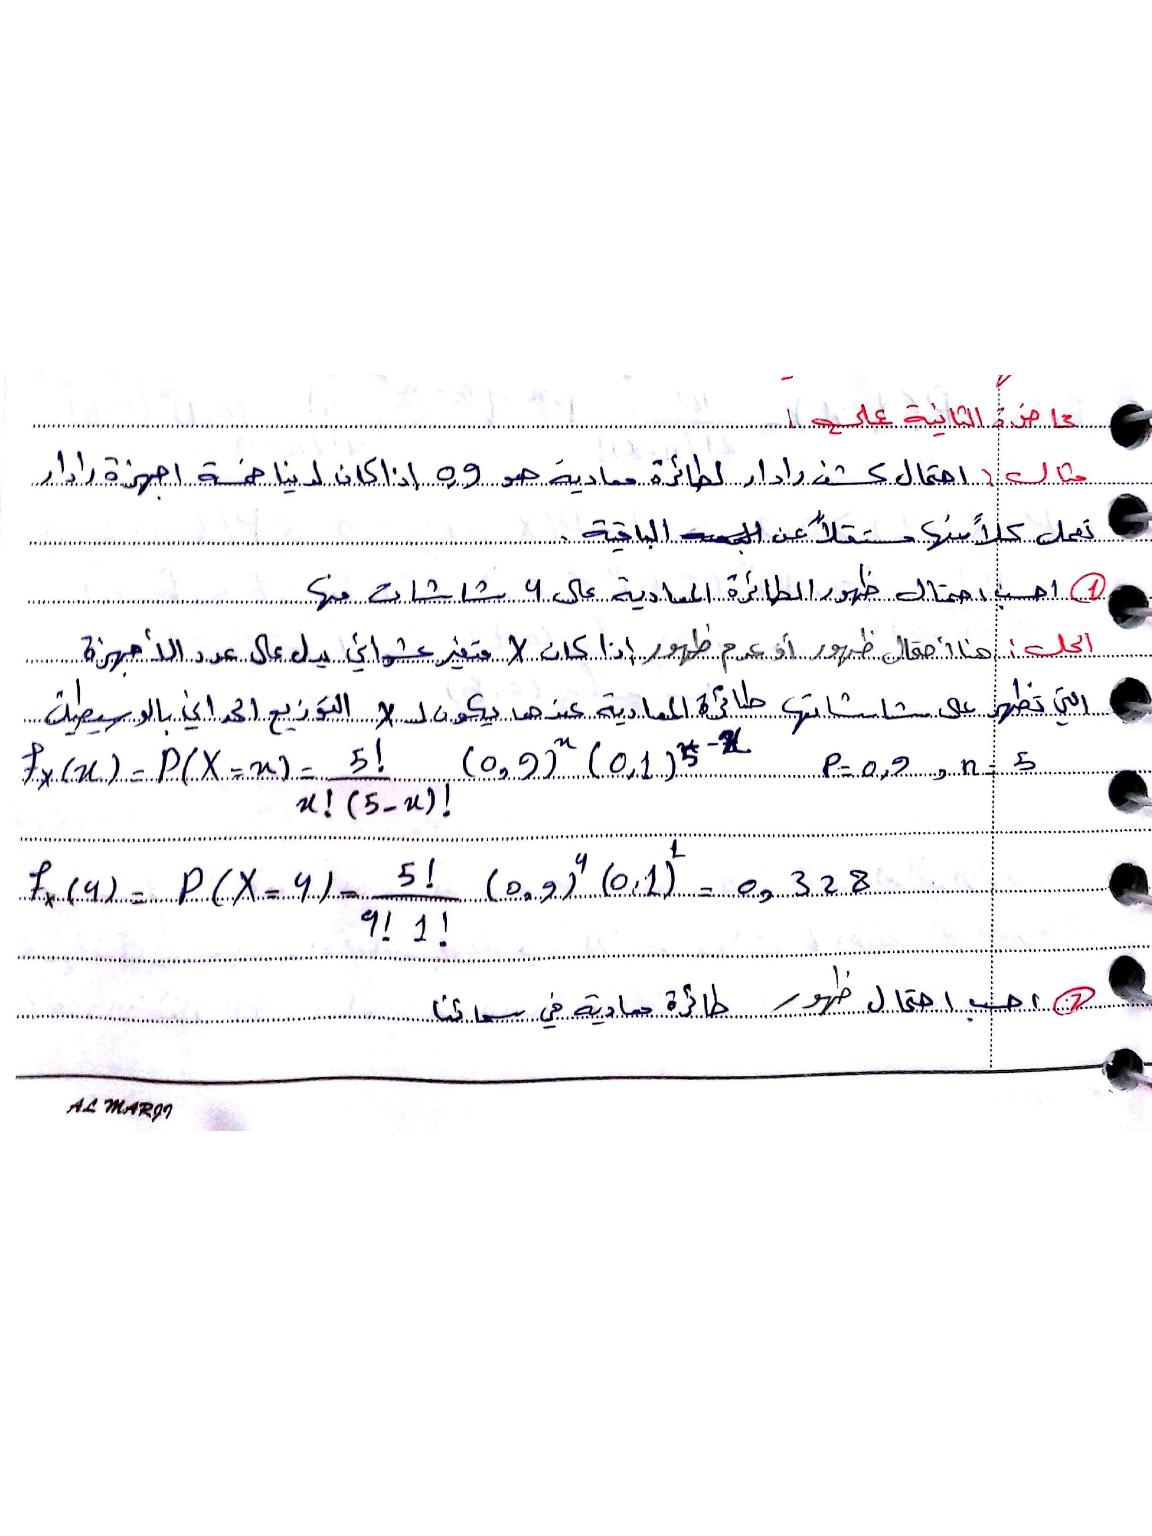 محاضرة الثانية عملي:
مثال: احتمال كشف رادار لطائرة معادية هو 0,9 إذا كان لدينا خمسة اجهزة رادار
تعمل كلاً منها مستقلاً عن الباقية.
① احسب احتمال ظهور الطائرة المعادية على 4 شاشات منها
الحل: هنا احتمال ظهور أو عدم ظهور إذا كان X متغير عشوائي يدل على عدد الأجهزة
التي تظهر على شاشاتها طائرة المعادية عندها يكون لـ X التوزيع الحداني بالوسيطين
fx(x) = P(X=x) = 5! / x!(5-x)! (0,9)^x (0,1)^5-x P=0,9 , n=5
fx(4) = P(X=4) = 5! / 4! 1! (0,9)^4 (0,1)^1 = 0,328
② احسب احتمال ظهور طائرة معادية في سمائنا
AL MARJI